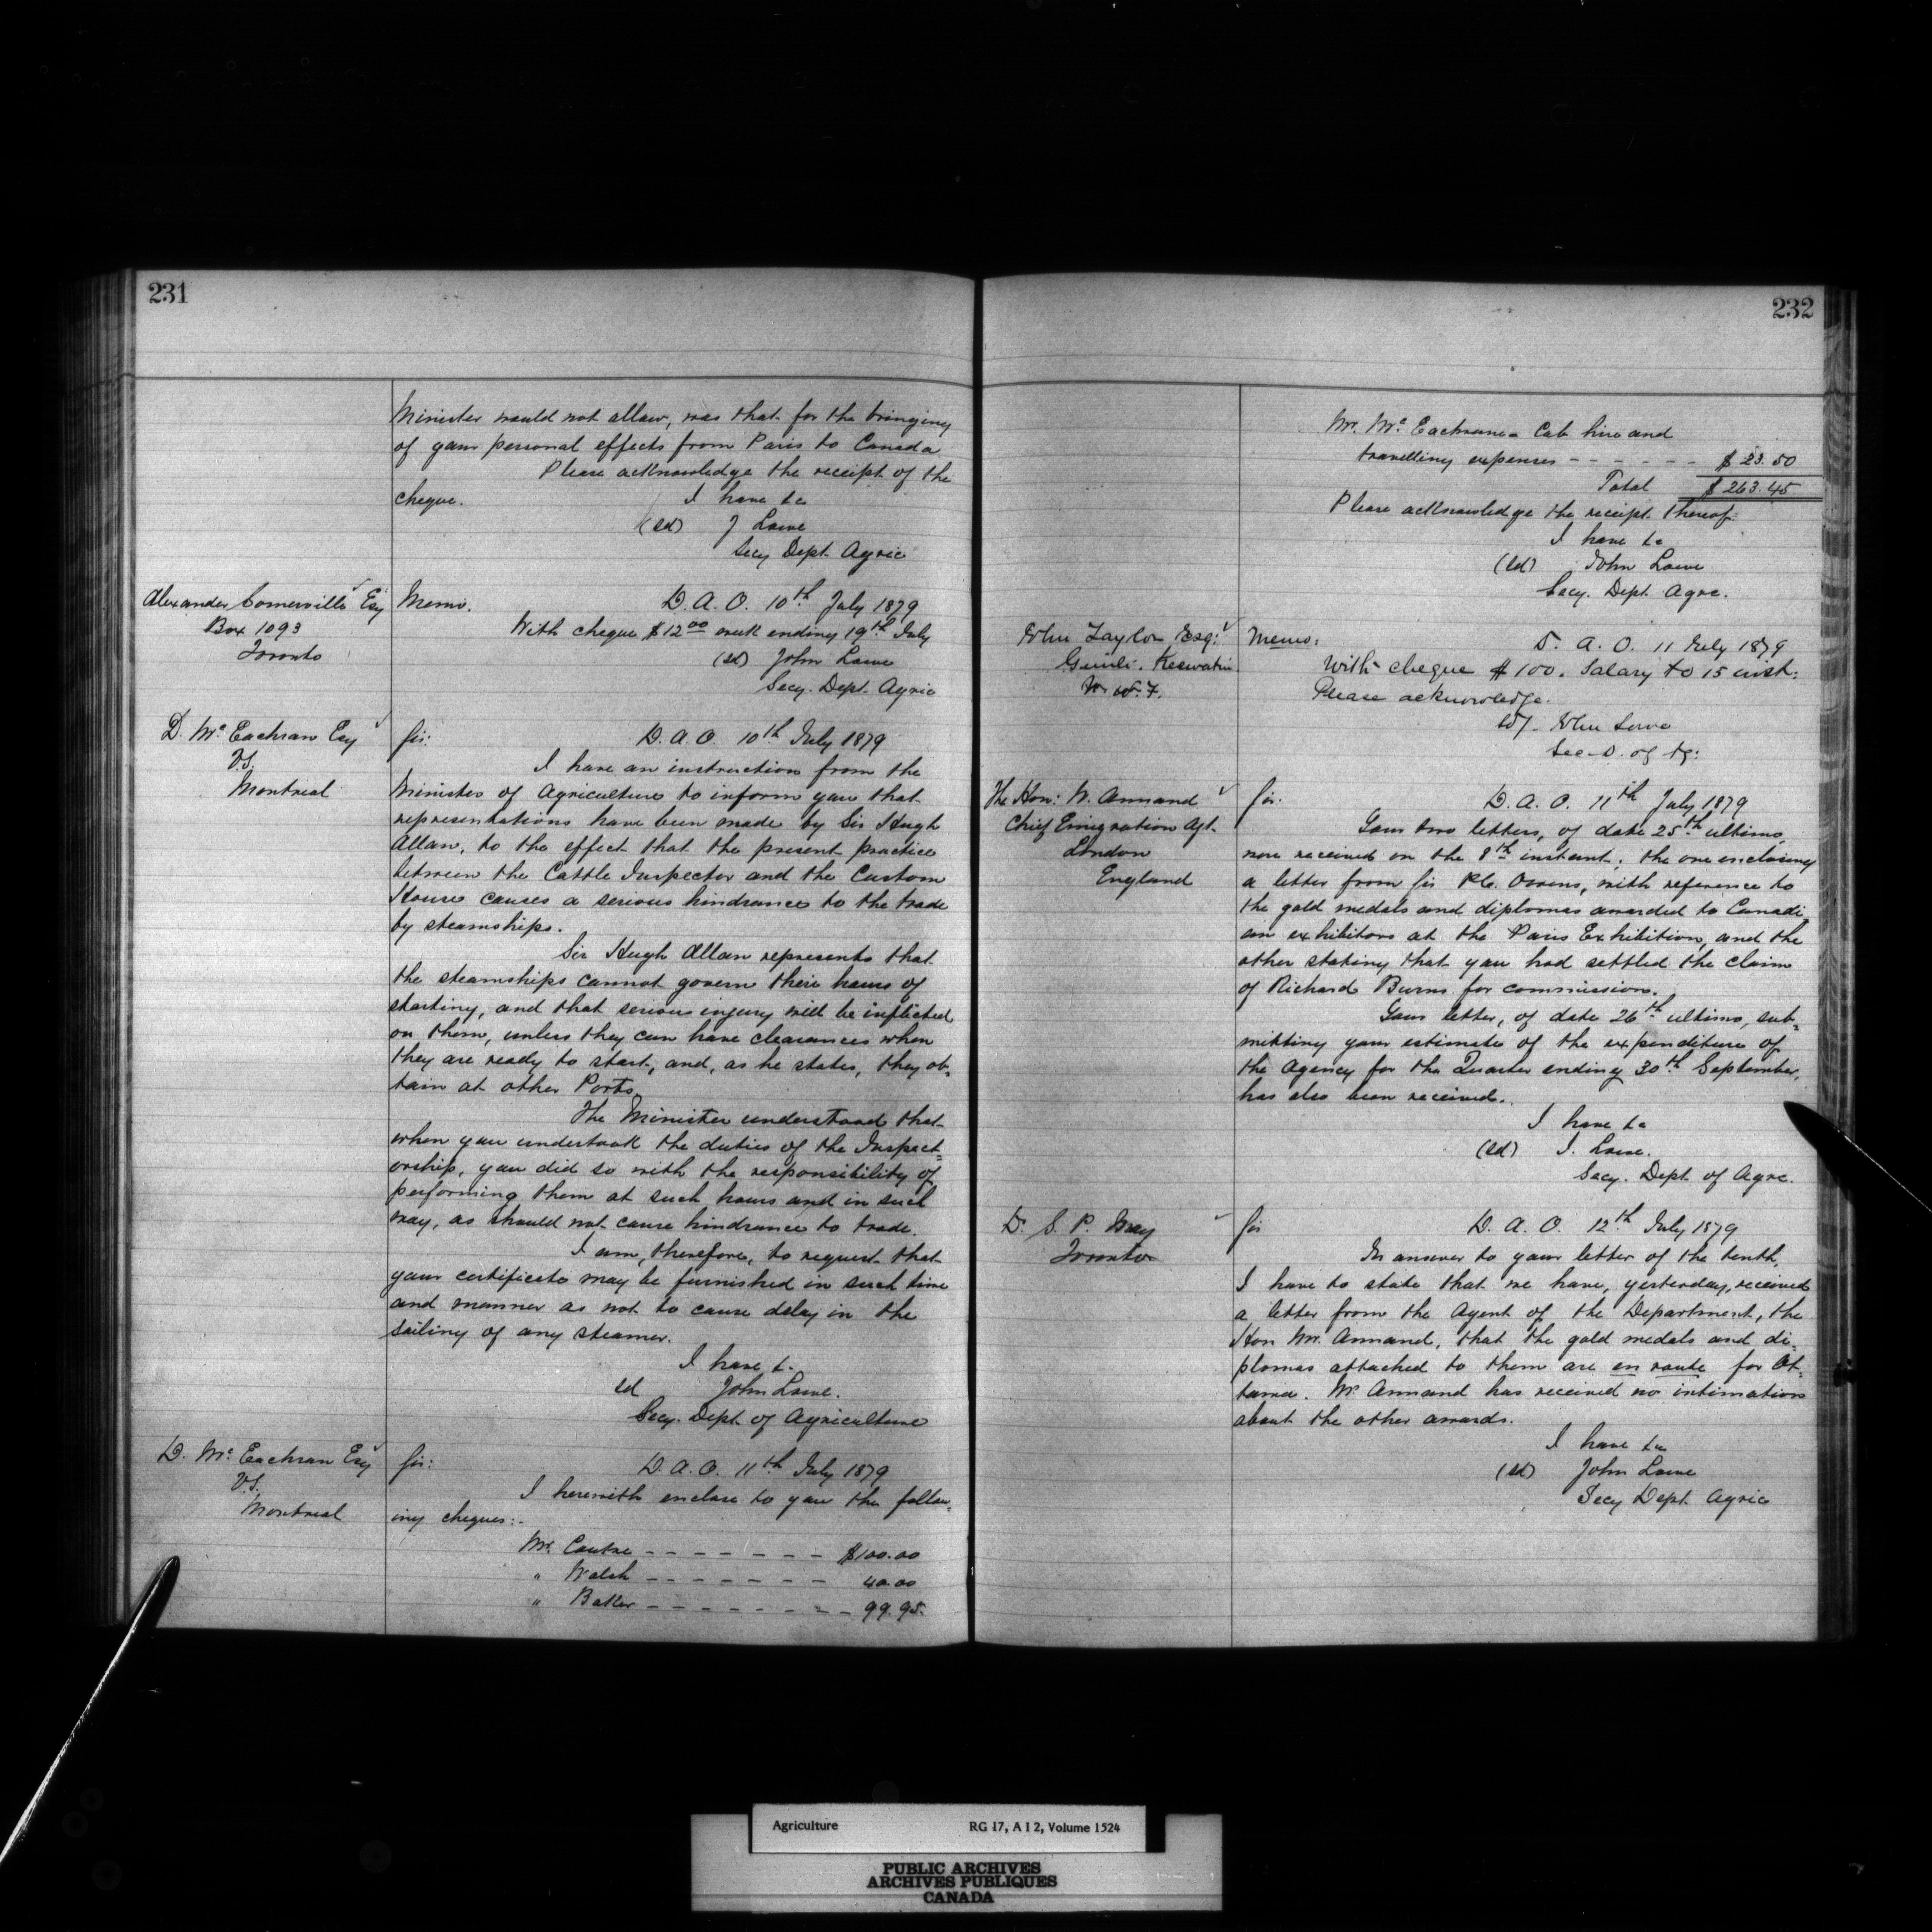 231
Minister would not allow, was that for the bringing
of your personal effects from Paris to Canada
Please acknowledge the receipt of the
cheque.
I have &c
(sd) J Lowe
Secy Dept Agric
Alexander Somerville Esq
Box 1093
Toronto
Memo. D. A. O. 10th July 1879
With cheque $12 00 week ending 19th July
(sd) John Lowe
Secy. Dept. Agric
D. Mc Eachran Esq
V.S.
Montreal
Sir: D. A. O. 10th July 1879
I have an instruction from the
Minister of Agriculture to inform you that
representations have been made by Sir Hugh
Allan, to the effect that the present practice
between the Cattle Inspector and the Custom
House causes a serious hindrance to the trade
by steamships.
Sir Hugh Allan represents that
the steamships cannot govern their hours of
starting, and that serious injury will be inflicted
on them, unless they can have clearances when
they are ready to start, and, as he states, they ob-
tain at other Ports.
The Minister understood that
when you undertook the duties of the Inspect-
orship, you did so with the responsibility of
performing them at such hours and in such
way, as should not cause hindrance to trade.
I am, therefore, to request that
your certificate may be furnished in such time
and manner as not to cause delay in the
sailing of any steamer.
I have &c
sd John Lowe.
Secy. Dept. of Agriculture
D. Mc Eachran Esq
V.S.
Montreal
Sir: D. A. O. 11th July 1879
I herewith enclose to you the follow-
ing cheques:-
Mr. Couture - - - - - - - $100.00
" Walsh - - - - - - - 40.00
" Baker - - - - - - - - 99.95.
232
Mr. Mc Eachran - Cab hire and
travelling expenses - - - - - - $ 23.50
Total $ 263.45
Please acknowledge the receipt thereof:
I have &c
(sd) John Lowe
Secy. Dept. Agrc.
John Taylor Esq:
Gimli. Keewatin
N. W. T.
Memo: D. A. O. 11 July 1879
With cheque $100. Salary to 15 inst:
Please acknowledge.
sd/- John Lowe
Sec-D. of Ag:
The Hon: W. Annand
Chief Emigration Agt.
London
England
Sir. D. A. O. 11th July 1879
Your two letters, of date 25th ultimo,
were received on the 8th instant; the one enclosing
a letter from Sir P.C. Owens, with reference to
the gold medals and diplomas awarded to Canadi-
an exhibitors at the Paris Exhibition, and the
other stating that you had settled the claim
of Richard Burns for commission.
Your letter, of date 26th ultimo, sub-
mitting your estimate of the expenditure of
the Agency for the Quarter ending 30th September,
has also been received.
I have &c
(sd) J. Lowe.
Secy. Dept of Agrc.
Dr S. P. May
Toronto
Sir D. A. O. 12th July 1879
In answer to your letter of the tenth,
I have to state that we have, yesterday, received
a letter from the Agent of the Department, the
Hon Mr. Annand, that the gold medals and di-
plomas attached to them are en route for Ot-
tawa. Mr. Annand has received no intimation
about the other awards.
I have &c
(sd) John Lowe
Secy Dept Agric
Agriculture RG 17, A I 2, Volume 1524
PUBLIC ARCHIVES
ARCHIVES PUBLIQUES
CANADA